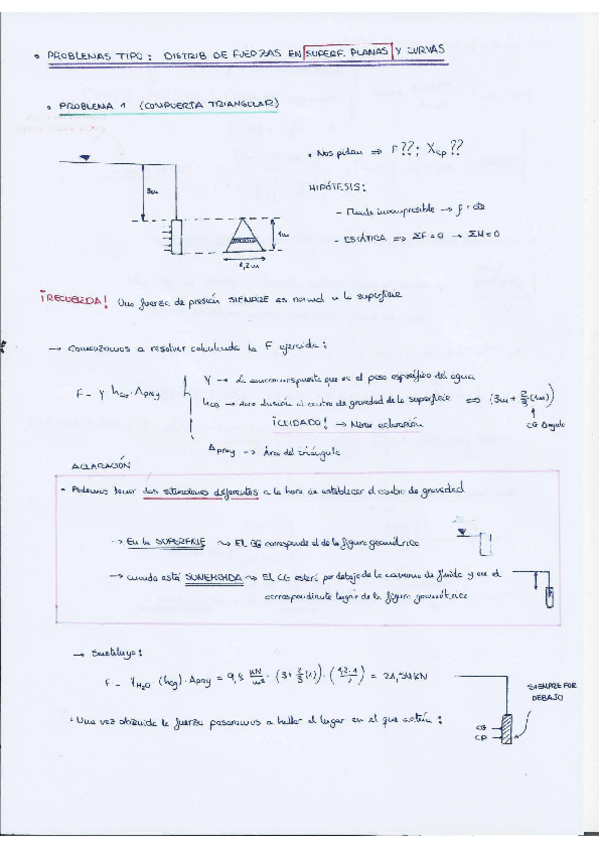 • PROBLEMAS TIPO: DISTRIB DE FUERZAS EN SUPERF. PLANAS Y CURVAS
• PROBLEMA 1 (COMPUERTA TRIANGULAR)
• Nos piden ⇒ F??; Xcp??
HIPÓTESIS:
3m
- Fluido incompresible → ρ = cte
1m
- ESTÁTICA ⇒ ΣF = 0 → ΣM = 0
1,2m
¡RECUERDA! Una fuerza de presión SIEMPRE es normal a la superficie
→ Comenzamos a resolver calculando la F ejercida:
γ → La que corresponde que es el peso específico del agua
F = γ hcg · Aproy
hcg → al centro de gravedad de la superficie ⇒ (3m + 2/3 (1m))
¡CUIDADO! → Mirar aclaración
CG triángulo
Aproy → Área del triángulo
ACLARACIÓN
• Podemos tener dos situaciones diferentes a la hora de establecer el centro de gravedad
→ En la SUPERFICIE → El CG corresponde al de la figura geométrica
→ Cuando está SUMERGIDA → El CG estará por debajo de la columna de fluido y en el
correspondiente lugar de la figura geométrica
→ Sustituyo:
F = γH₂O (hcg) · Aproy = 9,8 KN/m³ · (3 + 2/3 (1)) · (1,2·1/2) = 21,54 KN
SIEMPRE POR
DEBAJO
• Una vez obtenida la fuerza pasaremos a hallar el lugar en el que actúa:
CG
CP